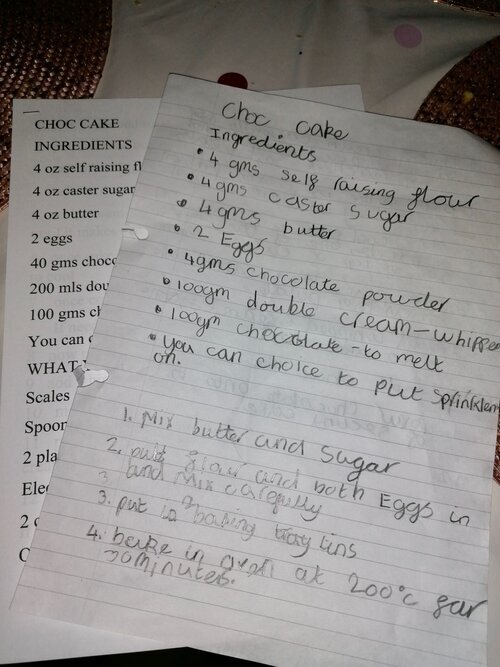 CHOC CAKE
INGREDIENTS
4 oz self raising fl
4 oz caster sugar
4 oz butter
2 eggs
40 gms choco
200 mls dou
100 gms ch
You can
WHAT
Scales
Spoon
2 pla
Elec
2
Choc cake
Ingredients
• 4 gms self raising flour
• 4gms caster sugar
• 4gms butter
• 2 Eggs
• 4gms chocolate powder
• 100gm double cream-whipped
• 100gm chocolate - to melt
• you can choice to put sprinkles
on.
1. Mix butter and sugar
2. put flour and both Eggs in
and Mix carefully
3. put in 2 baking tins
4. bake in oven at 200°c
minutes.